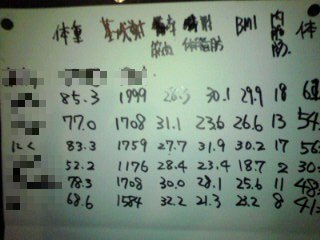 体重 基代謝 BMI 内 体
85.3 1999 26.3 30.1 29.9 18 6
77.0 1708 31.1 23.6 26.6 13 54
にく 83.3 1759 27.7 31.9 30.2 17 56
52.2 1176 28.4 23.4 18.7 2 30
78.3 1708 30.0 28.1 25.6 11 48
68.6 1584 32.2 21.3 23.2 8 41